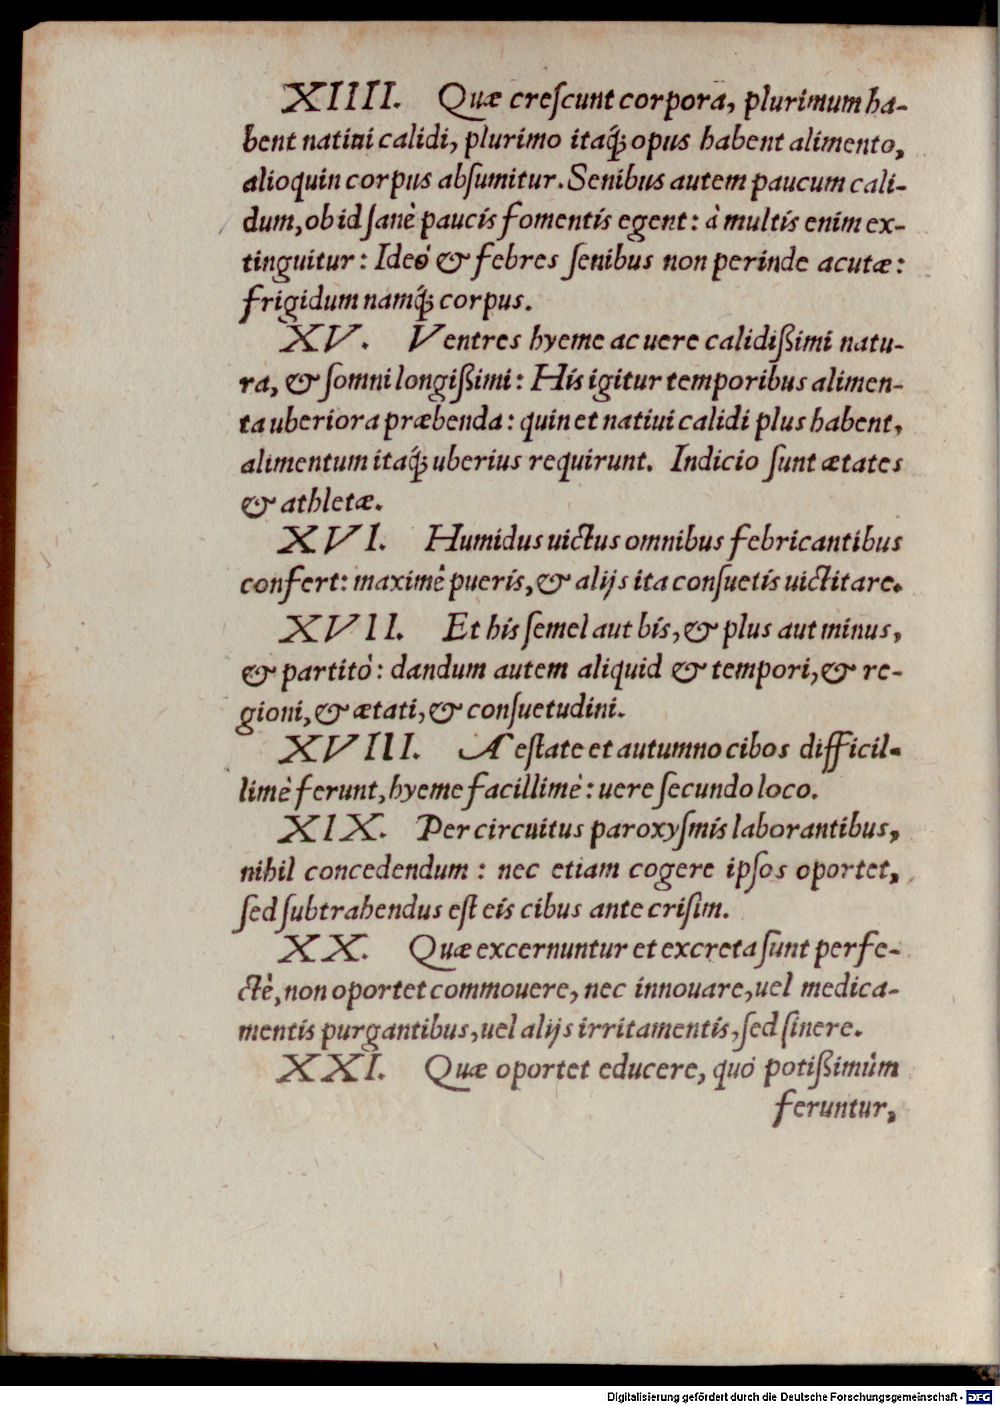 XIIII. Quæ creſcunt corpora, plurimum ha-
bent natiui calidi, plurimo itaq́; opus habent alimento,
alioquin corpus abſumitur. Senibus autem paucum cali-
dum, ob id ſanè paucis fomentis egent: à multis enim ex-
tinguitur: Ideó & febres ſenibus non perinde acutæ:
frigidum namq́; corpus.
XV. Ventres hyeme ac uere calidißimi natu-
ra, & ſomni longißimi: His igitur temporibus alimen-
ta uberiora præbenda: quin et natiui calidi plus habent,
alimentum itaq́; uberius requirunt. Indicio ſunt ætates
& athletæ.
XVI. Humidus uictus omnibus febricantibus
confert: maximè pueris, & alijs ita conſuetis uictitare.
XVII. Et his ſemel aut bis, & plus aut minus,
& partitò: dandum autem aliquid & tempori, & re-
gioni, & ætati, & conſuetudini.
XVIII. Aeſtate et autumno cibos difficil-
limè ferunt, hyeme facillimè: uere ſecundo loco.
XIX. Per circuitus paroxyſmis laborantibus,
nihil concedendum: nec etiam cogere ipſos oportet,
ſed ſubtrahendus eſt eis cibus ante criſim.
XX. Quæ excernuntur et excreta ſunt perfe-
ctè, non oportet commouere, nec innouare, uel medica-
mentis purgantibus, uel alijs irritamentis, ſed ſinere.
XXI. Quæ oportet educere, quó potißimùm
feruntur,
Digitalisierung gefördert durch die Deutsche Forschungsgemeinschaft - DFG